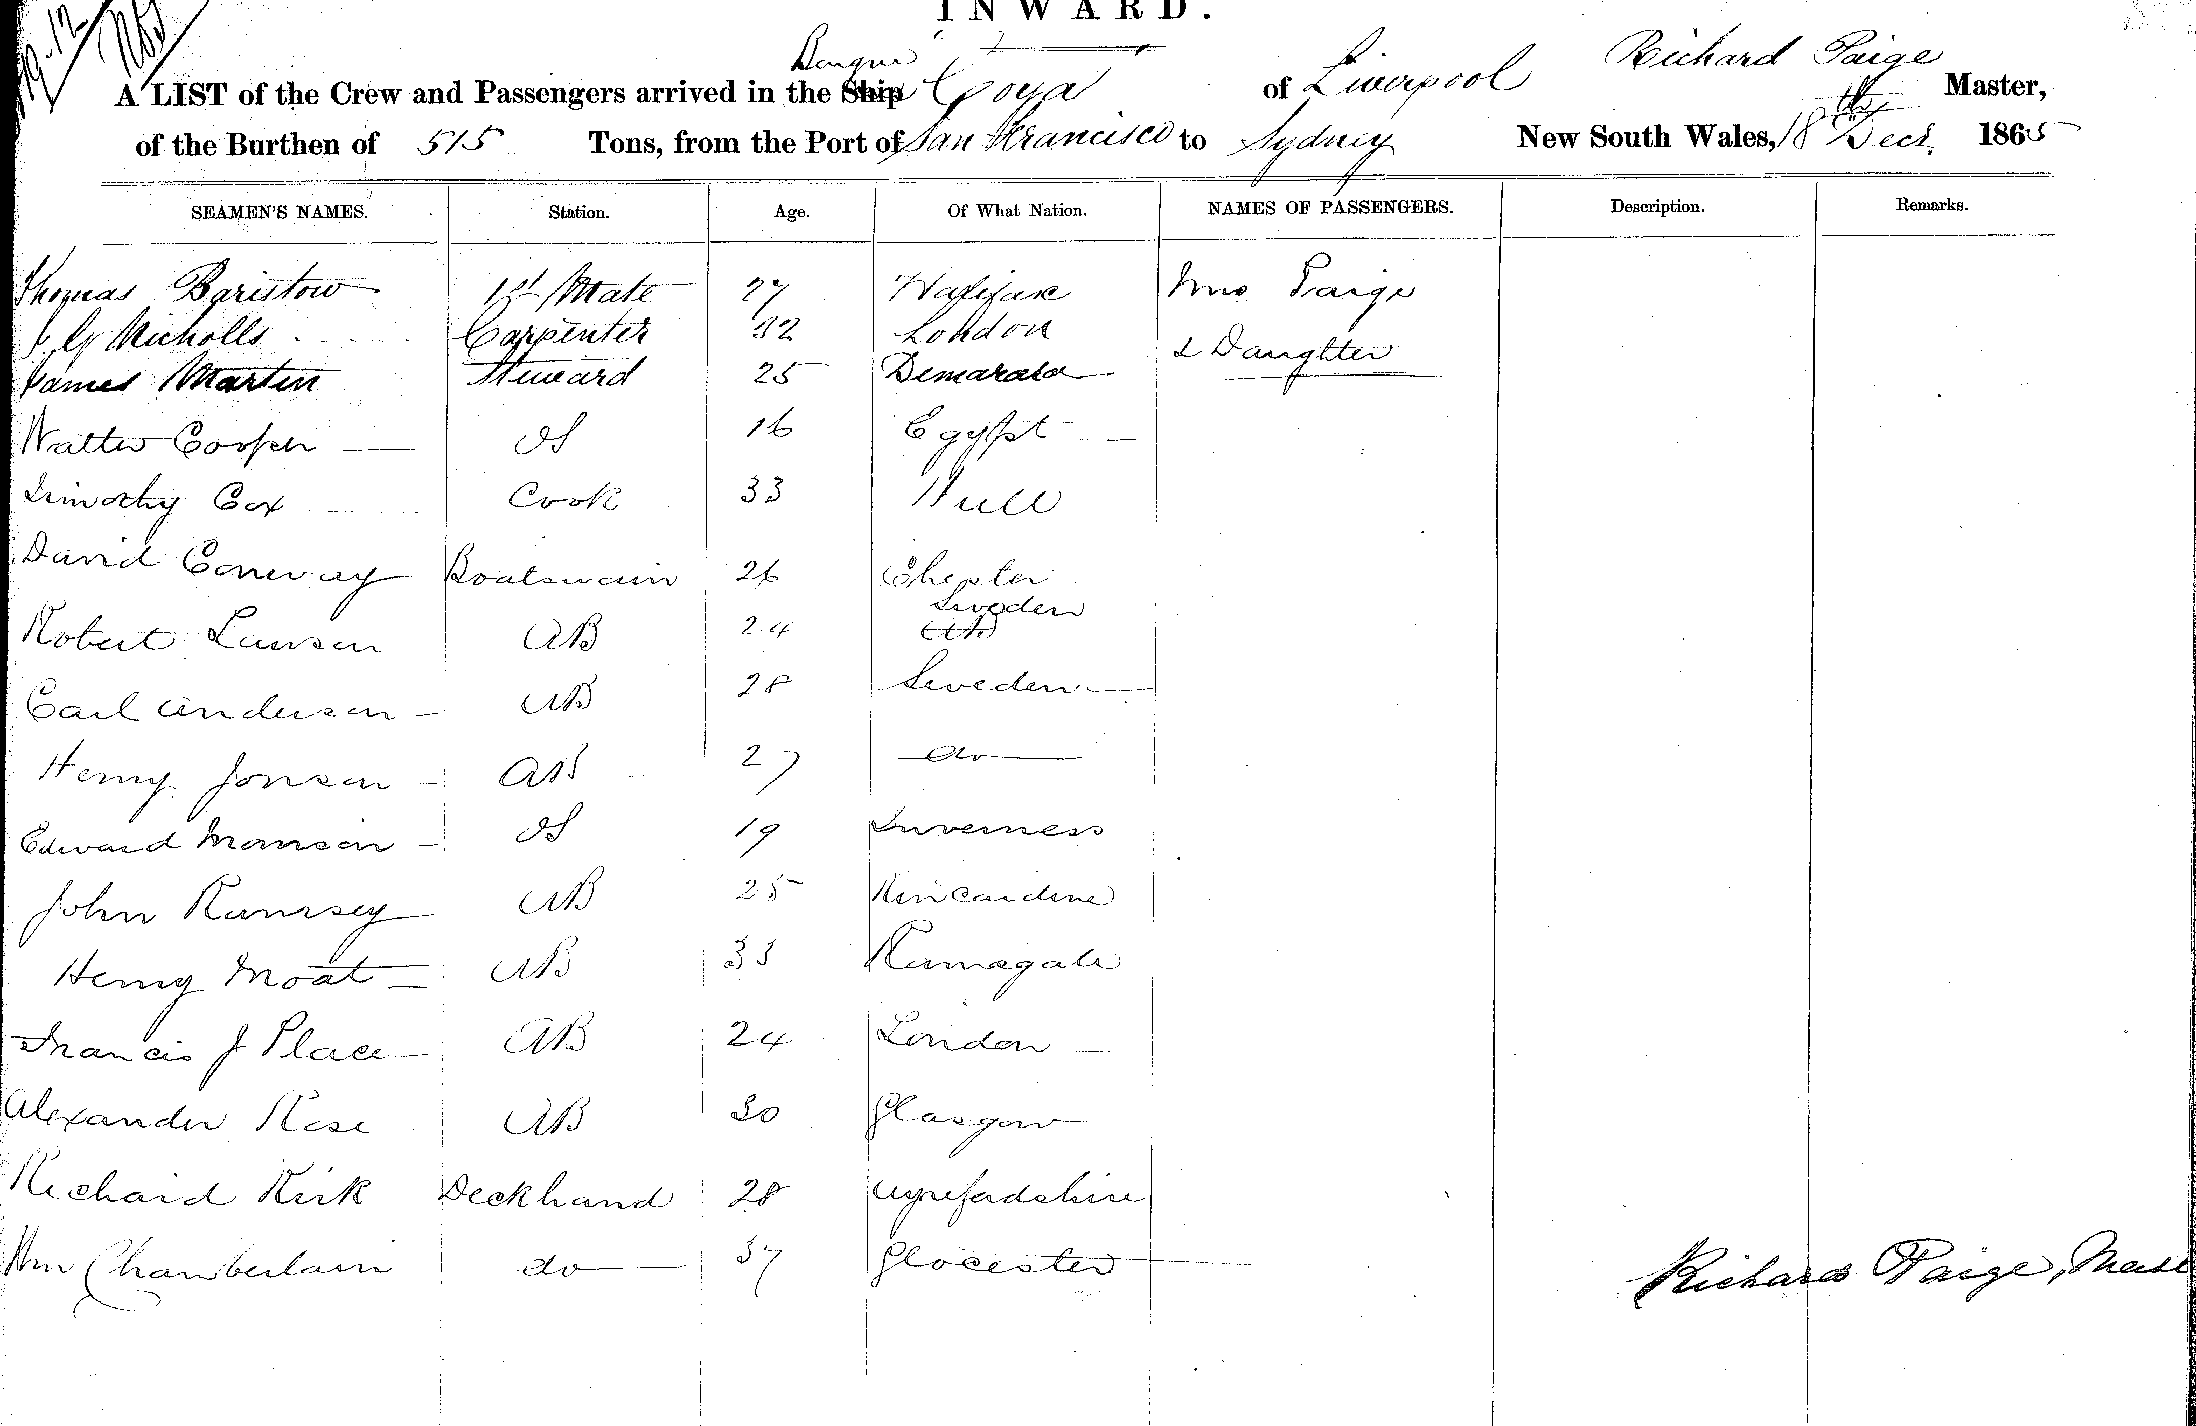 INWARD.
Barque
Richard Paige
A LIST of the Crew and Passengers arrived in the Ship Goya of Liverpool Master,
of the Burthen of 515 Tons, from the Port of San Francisco to Sydney New South Wales, 18 Decr. 1865
SEAMEN'S NAMES. Station. Age. Of What Nation. NAMES OF PASSENGERS. Description. Remarks.
Thomas Baristow 1st Mate 27 Halifax Mrs Paige
Nicholls Carpenter 32 London
& Daughter
James Martin Steward 25 Demarara
Walter Cooper OS 16 Egypt
Timothy Cox Cook 33 Hull
David Conway Boatswain 26 Chester
Sweden
Robert Lawsen AB 24
Carl Andersen AB 28 Sweden
Henry Jonsen AB 27 do
Edward Morrison OS 19 Inverness
John Ramsey AB 25 Kincardine
Henry Moat AB 33 Ramsgate
Francis J Place AB 24 London
Alexander Rose AB 30 Glasgow
Richard Kirk Deckhand 28
Wm Chamberlain do 37 Glocester
Richard Paige, Mast